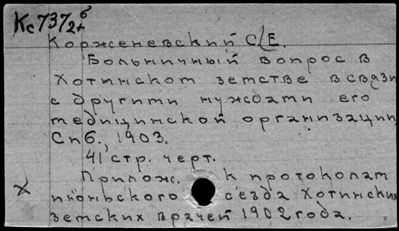 Кс 737/24 б
Корженевский С/Е.
Больничный вопрос в
Хотинском земстве в связи
с другими нуждами его
медицинской организации
Спб., 1903.
41 стр. черт.
Прилож. к протоколам
июньского съезда Хотинских
земских врачей 1902 года.